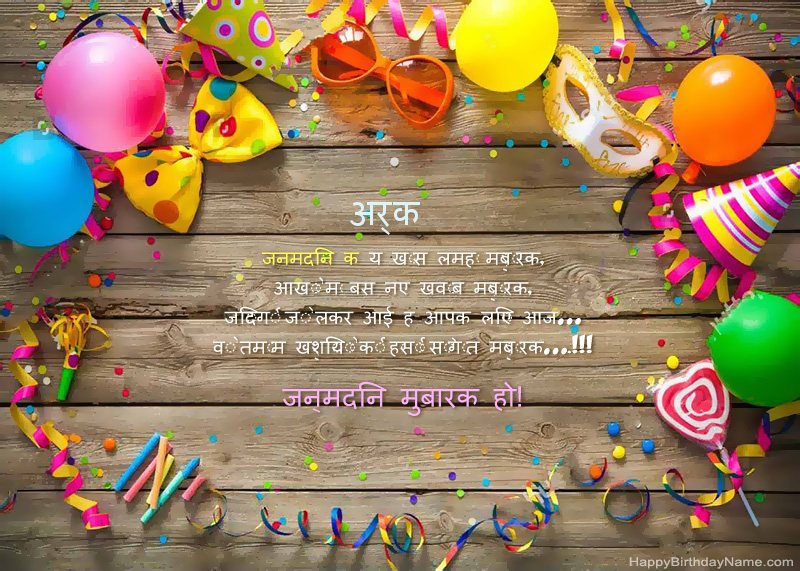 अर्क
जनमदिन क य खास लमह मबारक,
आखों म बस नए खवाब मबारक,
जिंदगी जो लेकर आई ह आपक लिए आज...
वो तमाम खुशियों की हसीं सौगात मबारक....!!!
जन्मदिन मुबारक हो!
HappyBirthdayName.com